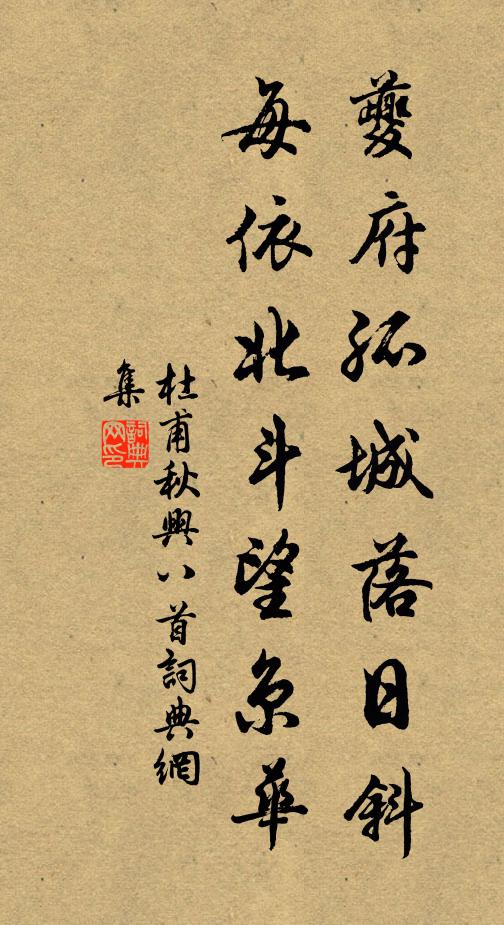 夔府孤城落日斜
每依北斗望京華
杜甫秋興八首詞典網
集
詞典
网印